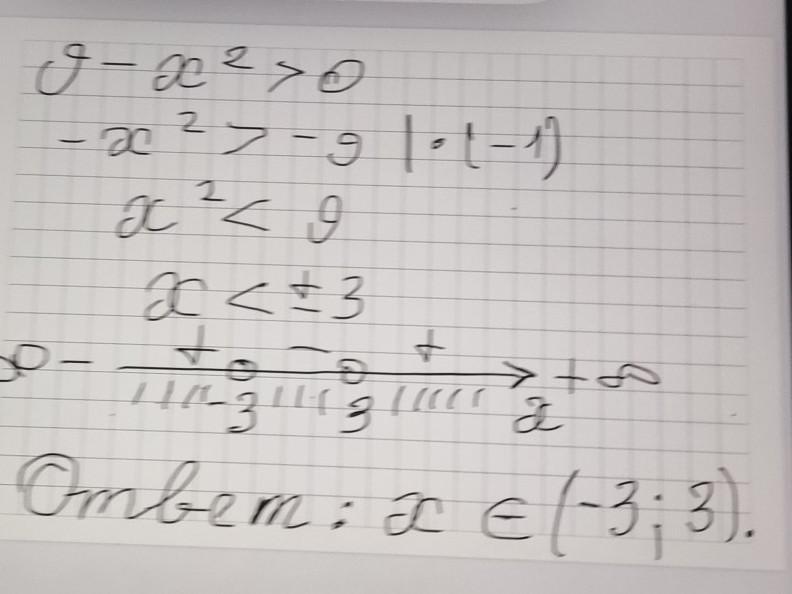 9 - x² > 0
-x² > -9 | · (-1)
x² < 9
x < ± 3
∞ - + - + + ∞
-3 3 x
Ответ: x ∈ (-3; 3).